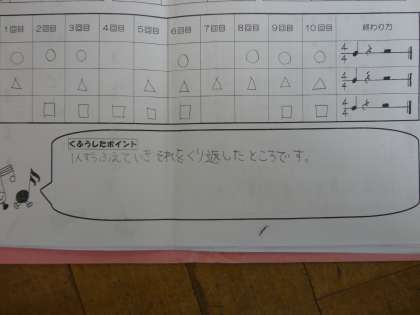 1回目 2回目 3回目 4回目 5回目 6回目 7回目 8回目 9回目 10回目 終わり方
4 4
4 4
4 4
くふうしたポイント
1人ずつふえていき それをくり返したところです。